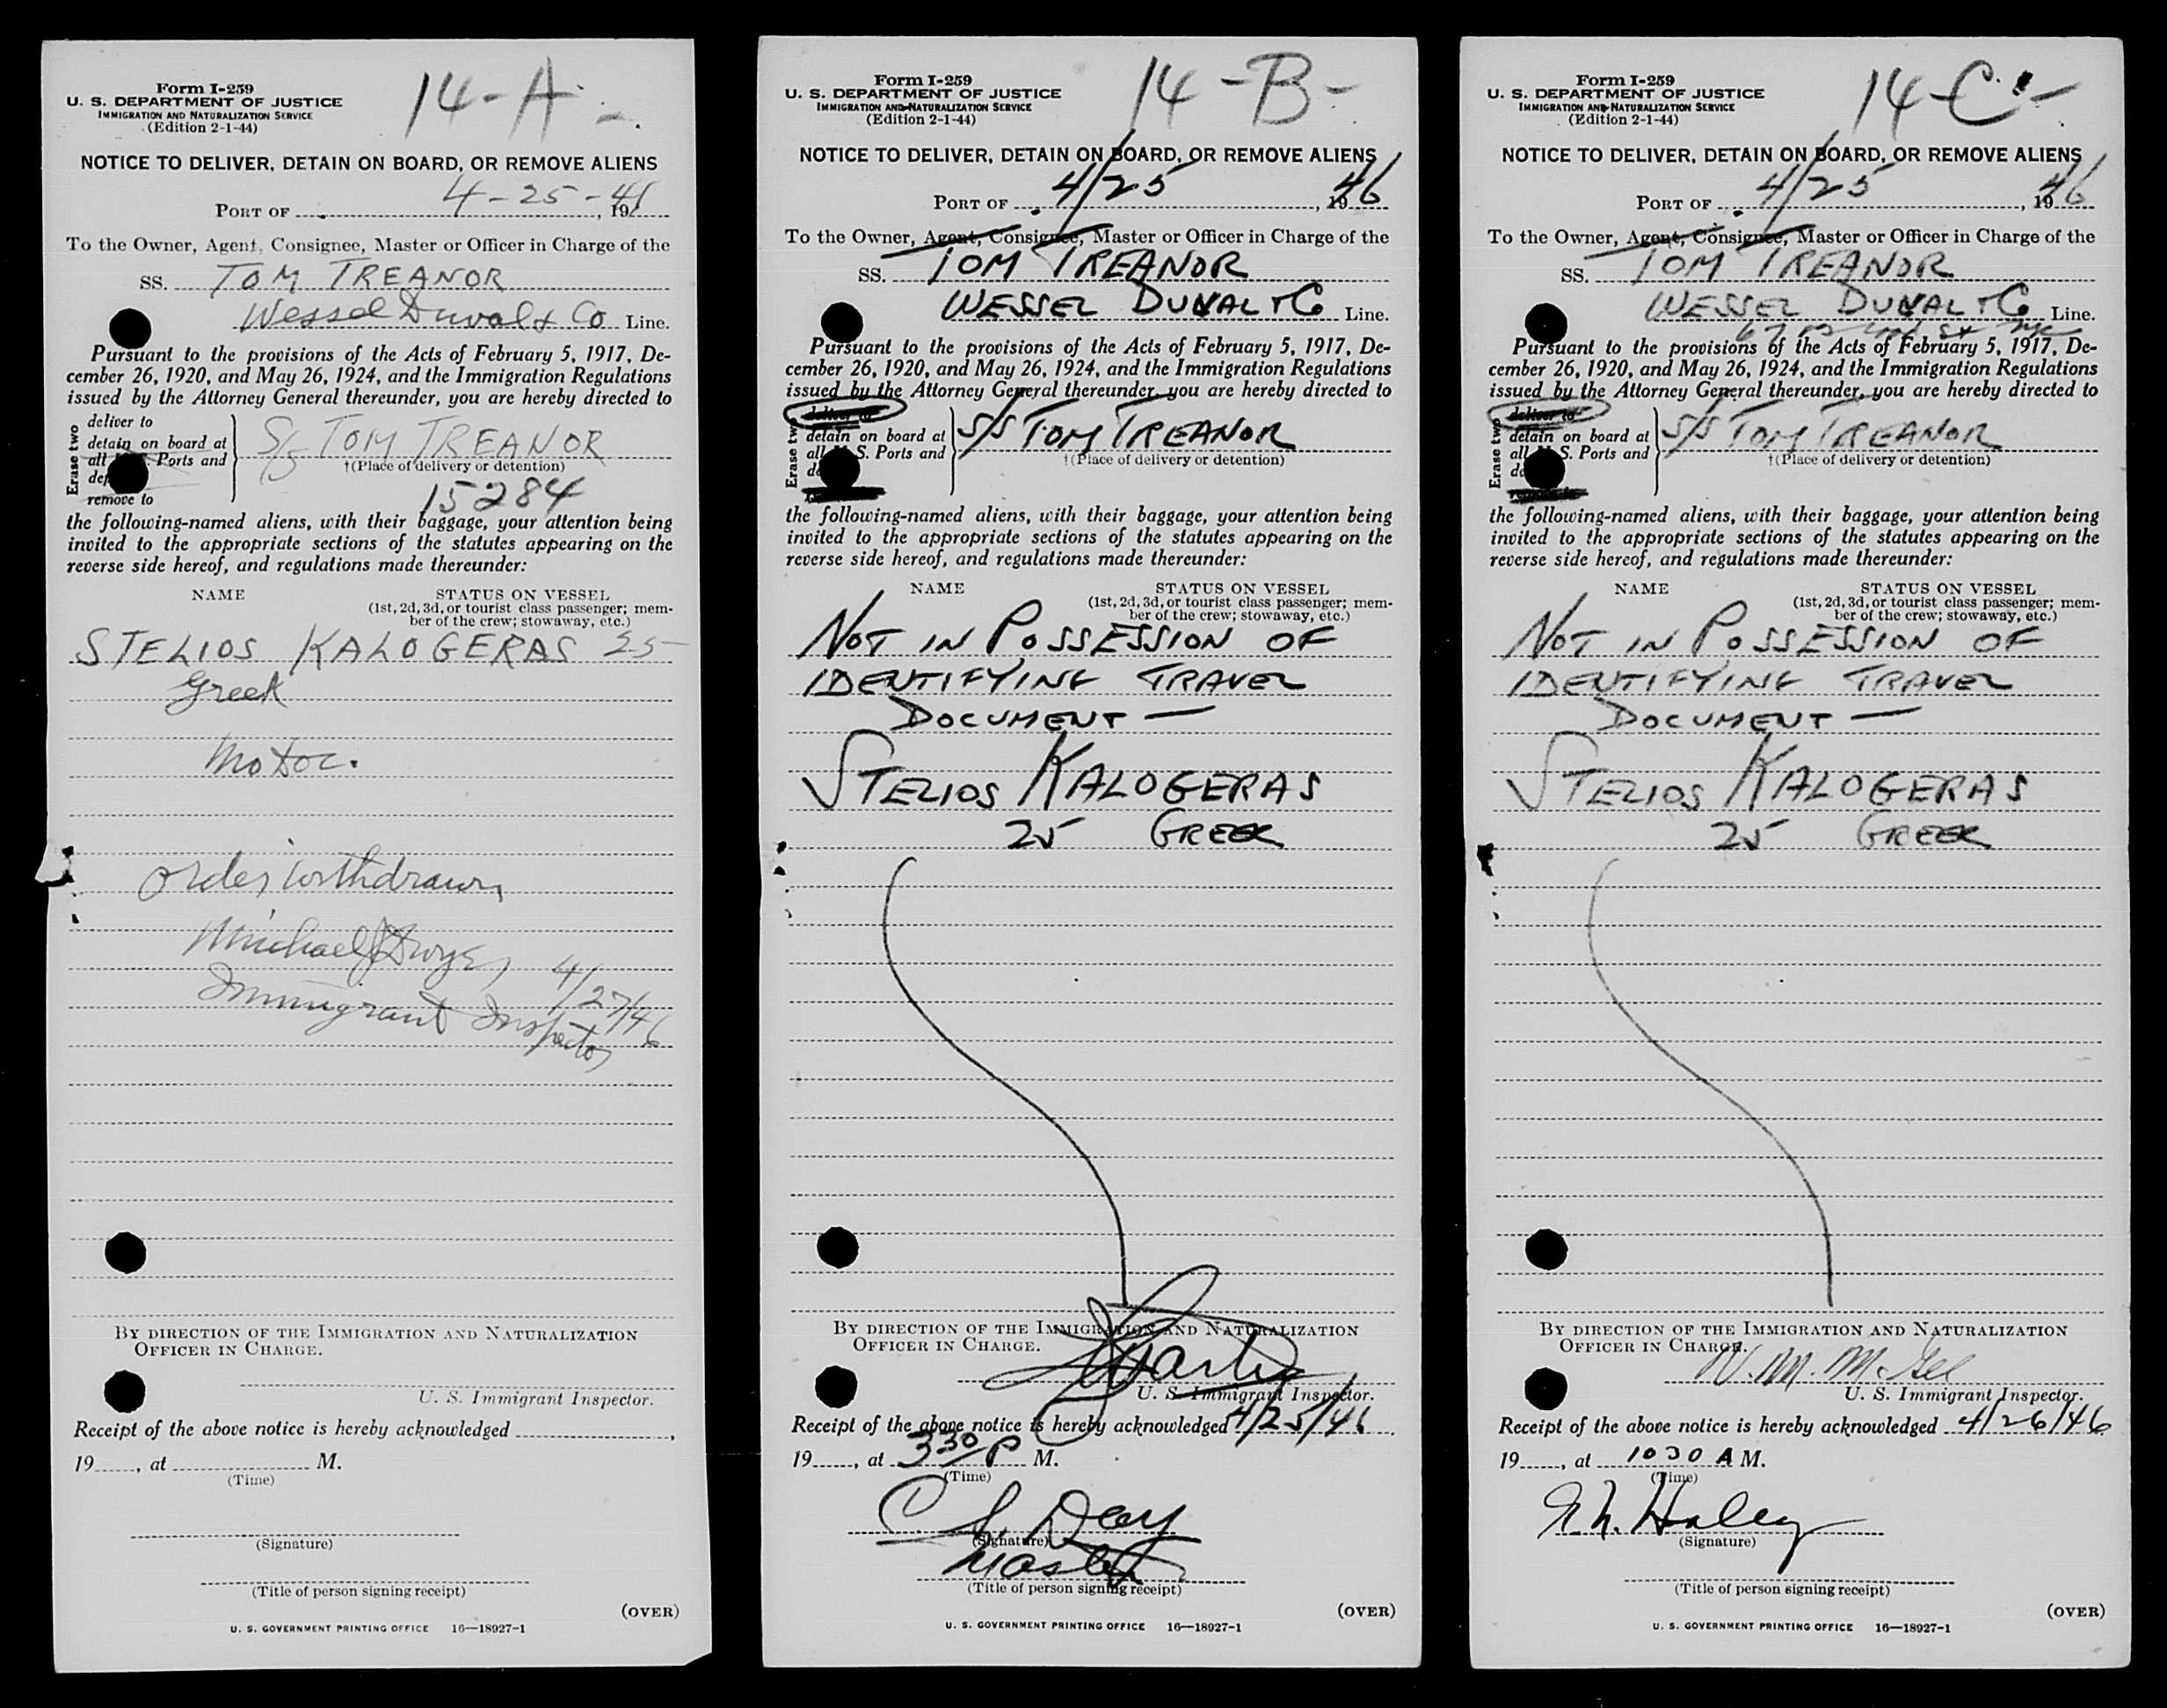 Form I-259
U. S. DEPARTMENT OF JUSTICE
IMMIGRATION AND NATURALIZATION SERVICE
(Edition 2-1-44)
14-A-
NOTICE TO DELIVER, DETAIN ON BOARD, OR REMOVE ALIENS
4-25-46
PORT OF , 19
To the Owner, Agent, Consignee, Master or Officer in Charge of the
SS. TOM TREANOR
Wessel Duval & Co Line.
Pursuant to the provisions of the Acts of February 5, 1917, De-
cember 26, 1920, and May 26, 1924, and the Immigration Regulations
issued by the Attorney General thereunder, you are hereby directed to
Erase two
deliver to
detain on board at
all Ports and
remove to
S/S TOM TREANOR
†(Place of delivery or detention)
15284
the following-named aliens, with their baggage, your attention being
invited to the appropriate sections of the statutes appearing on the
reverse side hereof, and regulations made thereunder:
NAME STATUS ON VESSEL
(1st, 2d, 3d, or tourist class passenger; mem-
ber of the crew; stowaway, etc.)
STELIOS KALOGERAS 25
Greek
Order withdrawn
Michael J Dwyer 4/27/46
Immigrant Inspector
BY DIRECTION OF THE IMMIGRATION AND NATURALIZATION
OFFICER IN CHARGE.
U. S. Immigrant Inspector.
Receipt of the above notice is hereby acknowledged ,
19 , at M.
(Time)
(Signature)
(Title of person signing receipt)
(OVER)
U. S. GOVERNMENT PRINTING OFFICE 16—18927-1
Form I-259
U. S. DEPARTMENT OF JUSTICE
IMMIGRATION AND NATURALIZATION SERVICE
(Edition 2-1-44)
14-B-
NOTICE TO DELIVER, DETAIN ON BOARD, OR REMOVE ALIENS
PORT OF 4/25, 1946
To the Owner, Agent, Consignee, Master or Officer in Charge of the
SS. TOM TREANOR
WESSEL DUVAL & Co Line.
Pursuant to the provisions of the Acts of February 5, 1917, De-
cember 26, 1920, and May 26, 1924, and the Immigration Regulations
issued by the Attorney General thereunder, you are hereby directed to
Erase two
deliver to
detain on board at
all S. Ports and
S/S TOM TREANOR
†(Place of delivery or detention)
the following-named aliens, with their baggage, your attention being
invited to the appropriate sections of the statutes appearing on the
reverse side hereof, and regulations made thereunder:
NAME STATUS ON VESSEL
(1st, 2d, 3d, or tourist class passenger; mem-
ber of the crew; stowaway, etc.)
NOT IN POSSESSION OF
IDENTIFYING TRAVEL
DOCUMENT —
STELIOS KALOGERAS
25 GREEK
BY DIRECTION OF THE IMMIGRATION AND NATURALIZATION
OFFICER IN CHARGE.
U. S. Immigrant Inspector.
Receipt of the above notice is hereby acknowledged 4/25/46
19 , at 330 P M.
(Time)
C. L. Day
(Signature)
Master
(Title of person signing receipt)
(OVER)
U. S. GOVERNMENT PRINTING OFFICE 16—18927-1
Form I-259
U. S. DEPARTMENT OF JUSTICE
IMMIGRATION AND NATURALIZATION SERVICE
(Edition 2-1-44)
14-C-
NOTICE TO DELIVER, DETAIN ON BOARD, OR REMOVE ALIENS
PORT OF 4/25, 1946
To the Owner, Agent, Consignee, Master or Officer in Charge of the
SS. TOM TREANOR
WESSEL DUVAL & Co Line.
67 St NYC
Pursuant to the provisions of the Acts of February 5, 1917, De-
cember 26, 1920, and May 26, 1924, and the Immigration Regulations
issued by the Attorney General thereunder, you are hereby directed to
Erase two
deliver to
detain on board at
all S. Ports and
S/S TOM TREANOR
†(Place of delivery or detention)
the following-named aliens, with their baggage, your attention being
invited to the appropriate sections of the statutes appearing on the
reverse side hereof, and regulations made thereunder:
NAME STATUS ON VESSEL
(1st, 2d, 3d, or tourist class passenger; mem-
ber of the crew; stowaway, etc.)
NOT IN POSSESSION OF
IDENTIFYING TRAVEL
DOCUMENT —
STELIOS KALOGERAS
25 GREEK
BY DIRECTION OF THE IMMIGRATION AND NATURALIZATION
OFFICER IN CHARGE.
W. M. McGee
U. S. Immigrant Inspector.
Receipt of the above notice is hereby acknowledged 4/26/46
19 , at 1030 A M.
(Time)
Haley
(Signature)
(Title of person signing receipt)
(OVER)
U. S. GOVERNMENT PRINTING OFFICE 16—18927-1